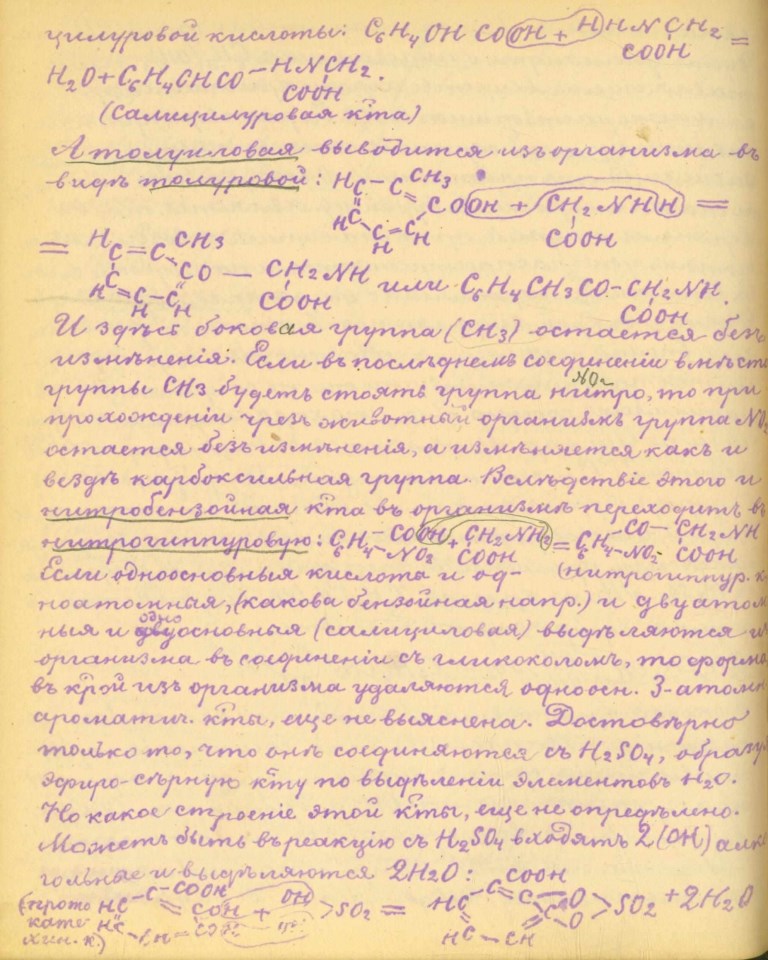 цилуровой кислоты: C6H4OH COOH + HHNCH2 =
COOH
H2O + C6H4CHCO — HNCH2.
COOH
(Салицилуровая к̅та)
А толуиловая выводится изъ организма въ
видѣ толуровой: HC – C CH3 COOH + CH2NHH =
HC C – C H COOH
H H
= HC – C CH3 CO — CH2NH или C6H4CH3CO–CH2NH.
HC = C – C H COOH COOH
H H
И здѣсь боковая группа (CH3) остается безъ
измѣненія. Если въ послѣднемъ соединеніи вмѣсто
группы CH3 будетъ стоять группа нитро, NO2 то при
прохожденіи чрезъ животный организмъ группа NO2
остается безъ измѣненія, а измѣняется какъ и
вездѣ карбоксильная группа. Вслѣдствіе этого и
нитробензойная к̅та въ организмѣ переходитъ въ
нитрогиппуровую: C6H4 – COOH – NO2 + CH2NH2 COOH = C6H4 – CO – NO2 – CH2NH COOH
Если одноосновныя кислота и од- (нитрогиппур. к
ноатомныя, (какова бензойная напр.) и двуатом
ныя и одноосновныя (салициловая) выдѣляются из
организма въ соединеніи съ гликоколомъ, то форма,
въ к̅рой изъ организма удаляются одноосн. 3-атомн
ароматич. к̅ты, еще не выяснена. Достовѣрно
только то, что онѣ соединяются съ H2SO4, образу
эфиро-сѣрную к̅ту по выдѣленіи элементовъ H2O.
Но какое строеніе этой к̅ты, еще не опредѣлено.
Можетъ быть въ реакцію съ H2SO4 входятъ 2(OH) алко
гольные и выдѣляются 2H2O:
(прото HC – C – COOH COH + OH > SO2 = HC C COOH C – O C – O > SO2 + 2H2O
кате HC – CH = COH
хин. к.) HC – CH